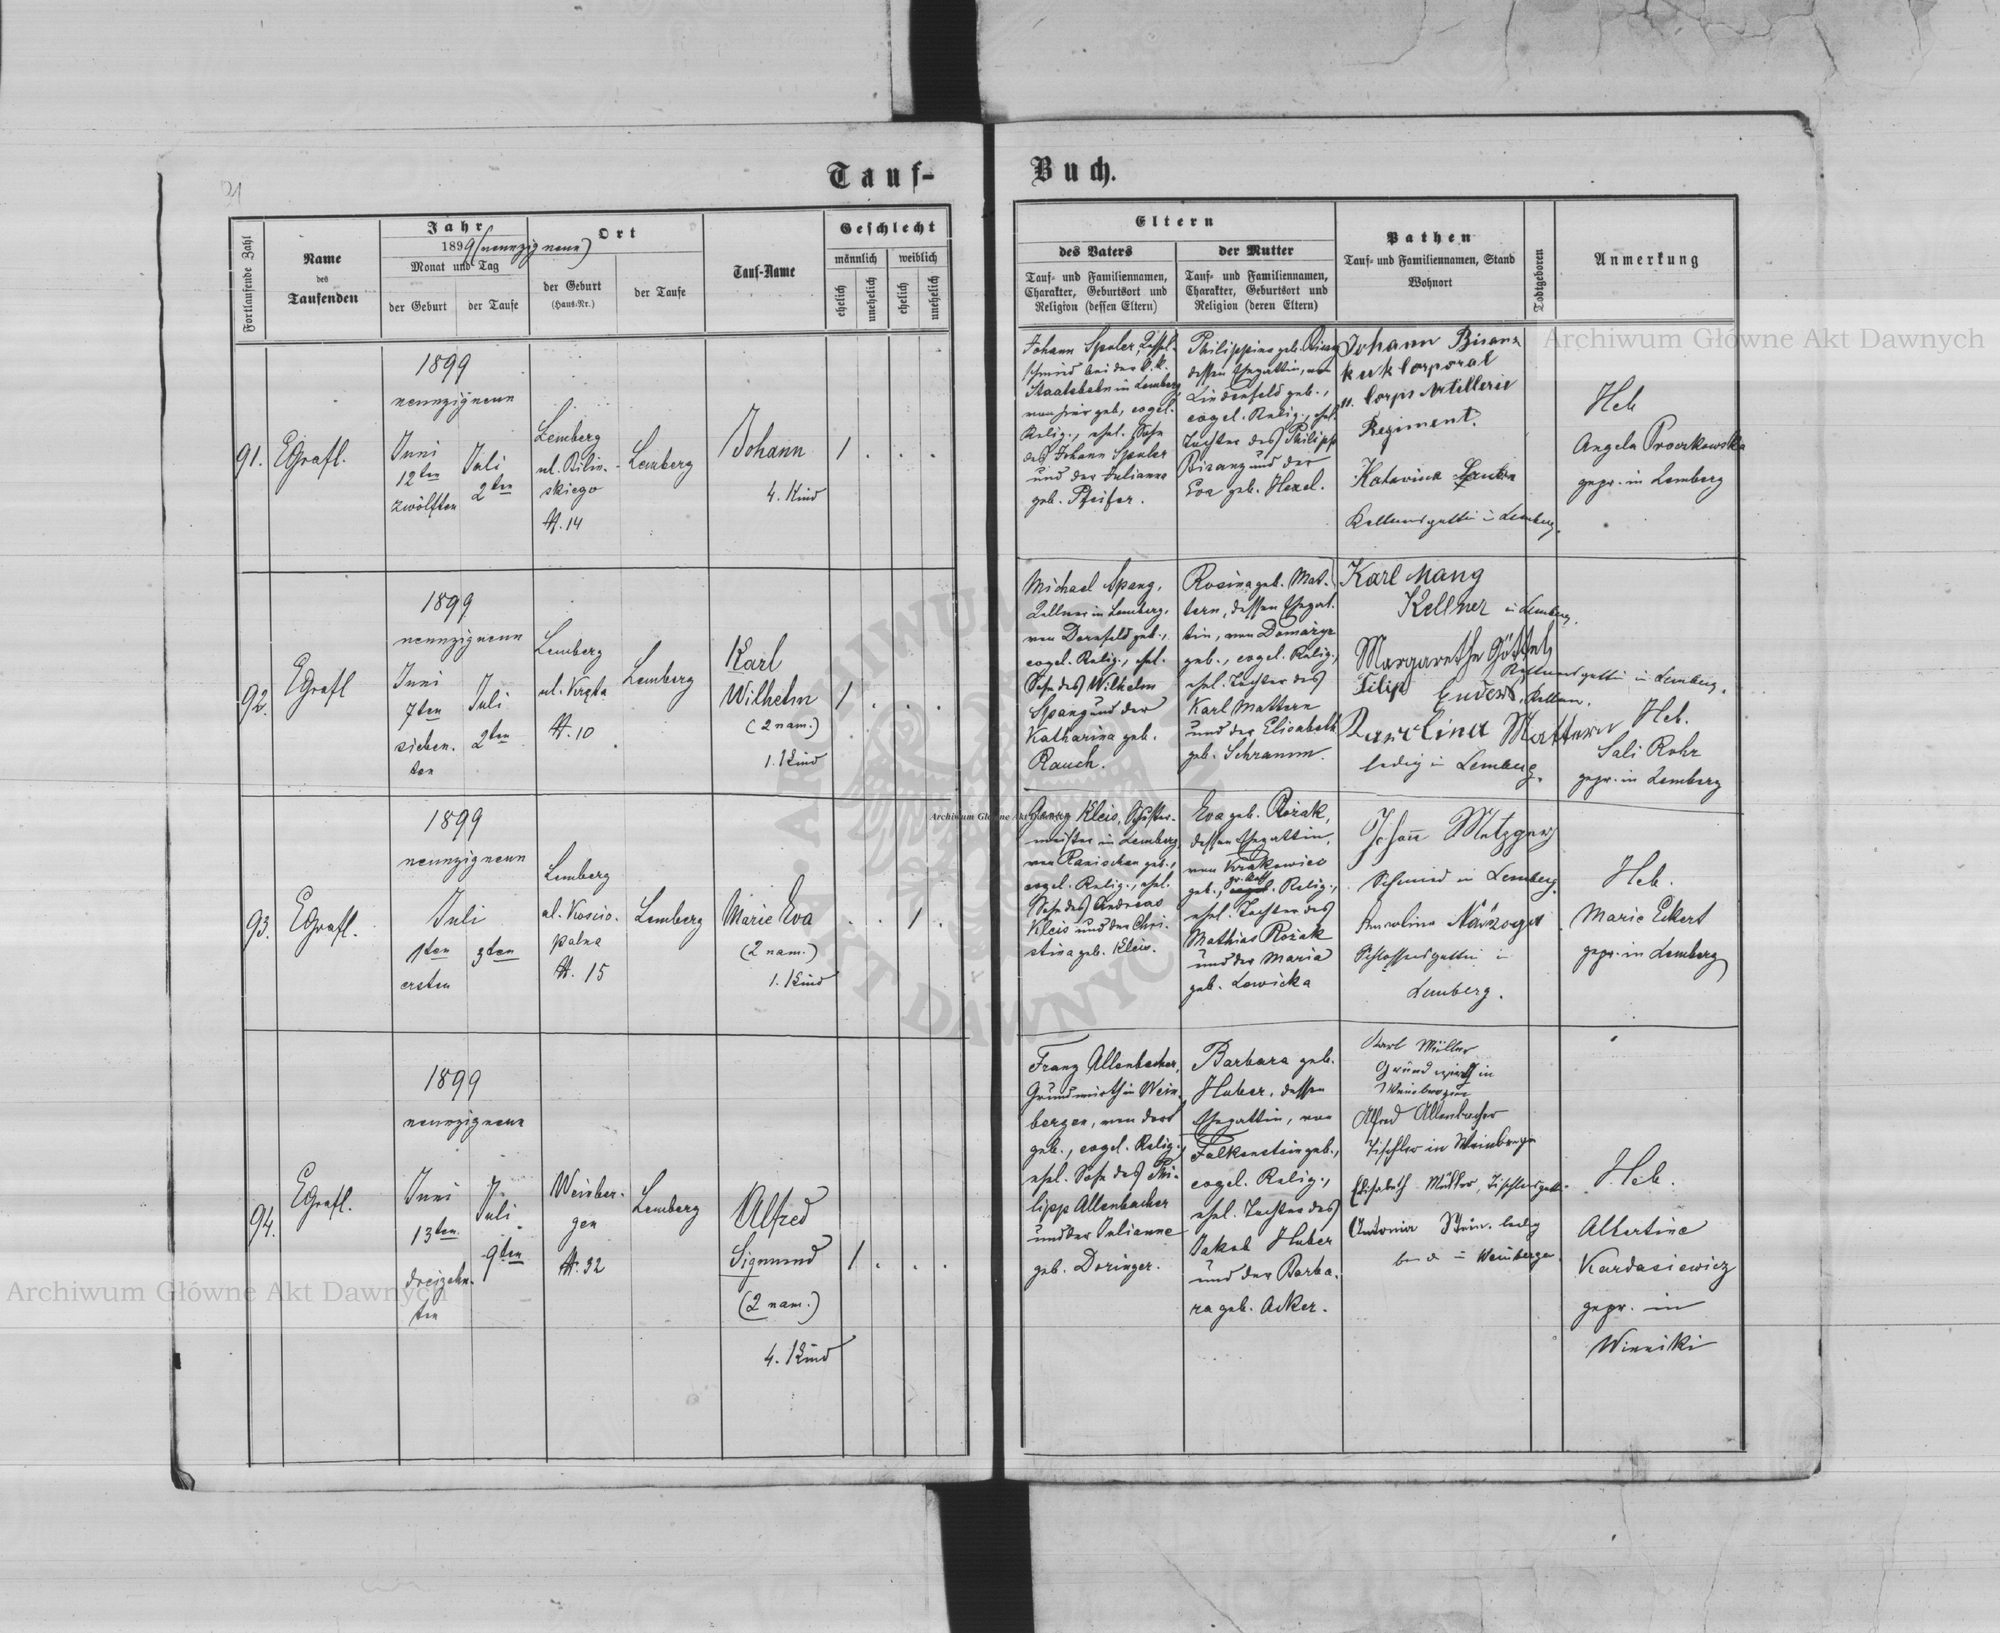 21
Tauf-
Buch.
Fortlaufende Zahl
Name
des
Taufenden
Jahr
1899 (neunzig neun)
Monat und Tag
der Geburt
der Taufe
Ort
der Geburt
(Haus-Nr.)
der Taufe
Tauf-Name
Geschlecht
männlich
weiblich
ehelich
unehelich
ehelich
unehelich
Eltern
des Vaters
Tauf- und Familiennamen,
Charakter, Geburtsort und
Religion (dessen Eltern)
der Mutter
Tauf- und Familiennamen,
Charakter, Geburtsort und
Religion (deren Eltern)
Pathen
Tauf- und Familiennamen, Stand
Wohnort
Todtgeboren
Anmerkung
91.
EGrafl.
1899
neunzigneun
Juni
12ten
zwölften
Juli
2ten
Lemberg
ul. Bilin-
skiego
N. 14
Lemberg
Johann
4. Kind
1 . . .
Johann Spaler,
schmied bei der k.k.
Staatsbahn in Lemberg,
von hier geb., evgel.
Relig., ehel. Sohn
des Johann Spaler
und der Julianna
geb. Pfeifer.
Philippina geb. Bisanz
dessen Ehegattin, von
Lindenfeld geb.,
evgel. Relig., ehel.
Tochter des Philipp
Bisanz und der
Eva geb. Hexel.
Johann Bisanz
kuk Corporal
11. Corps Artillerie
Regiment.
Katarina
Kellnersgattin in Lemberg.
Heb
Angela Proczkowska
gepr. in Lemberg
92.
EGrafl
1899
neunzigneun
Juni
7ten
sieben-
ten
Juli
2ten
Lemberg
ul. Kręta
N. 10
Lemberg
Karl
Wilhelm
(2 nam.)
1. Kind
1 . . .
Michael Spang,
Kellner in Lemberg,
von Dornfeld geb.,
evgel. Relig., ehel.
Sohn des Wilhelm
Spang und der
Katharina geb.
Rauch.
Rosina geb. Mat-
tern, dessen Ehegat-
tin, von Domażyr
geb., evgel. Relig.,
ehel. Tochter des
Karl Mattern
und der Elisabeth
geb. Schramm.
Karl Mang
Kellner in Lemberg.
Margarethe Göttel,
Kellnersgattin in Lemberg.
Filip Enders, Kellner.
Karolina Mattern
ledig in Lemberg.
Heb.
Sali Rohr
gepr. in Lemberg
93.
EGrafl.
1899
neunzigneun
Juli
1ten
ersten
3ten
Lemberg
ul. Koscio-
palna
N. 15
Lemberg
Marie Eva
(2 nam.)
1. Kind
. . 1 .
Georg Kleis, Schuster-
meister in Lemberg,
von Ranischau geb.,
evgel. Relig., ehel.
Sohn des Andreas
Kleis und der Chri-
stina geb. Klein.
Eva geb. Rożak,
dessen Ehegattin,
von Krakowiec
geb., gr. kath. Relig.,
ehel. Tochter des
Mathias Rożak
und der Maria
geb. Lowicka
Johann Metzger
Schmied in Lemberg.
Karolina
Schlossersgattin in
Lemberg.
Heb.
Marie Eckert
gepr. in Lemberg
94.
EGrafl.
1899
neunzigneun
Juni
13ten
dreizehn-
ten
Juli
9ten
Weinber-
gen
N. 32
Lemberg
Alfred
Sigmund
(2 nam.)
4. Kind
1 . . .
Franz Allenbacher,
Grundwirth in Wein-
bergen, von dort
geb., evgel. Relig.,
ehel. Sohn des Phi-
lipp Allenbacher
und der Julianne
geb. Doringer.
Barbara geb.
Huber, dessen
Ehegattin, von
Falkenstein geb.,
evgel. Relig.,
ehel. Tochter des
Jakob Huber
und der Barba-
ra geb. Acker.
Karl Müller
Grundwirth in
Weinbergen
Alfred Allenbacher
Tischler in Weinbergen
Elisabeth Müller, Tischlersgattin
Antonia Stein, ledig
beide in Weinbergen.
Heb.
Albertine
Kardasiewicz
gepr. in
Winniki
Archiwum Główne Akt Dawnych
Archiwum Główne Akt Dawnych
Archiwum Główne Akt Dawnych